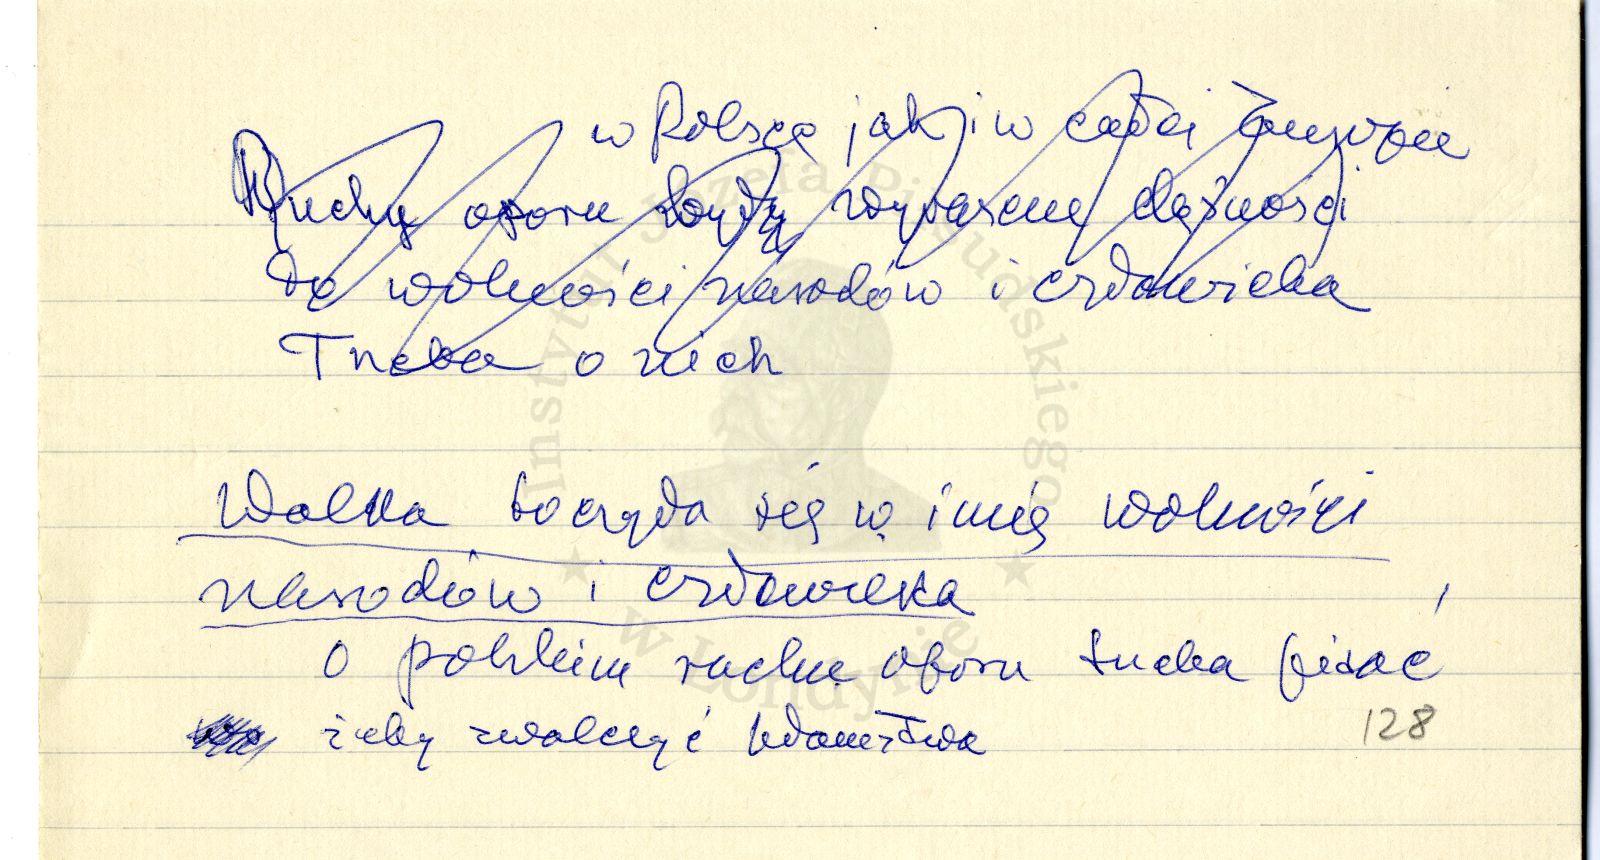 w Polsce jak i w całej Europie
Ruchy oporu były wyrazem dążności
do wolności narodów i człowieka
Trzeba o nich
Walka toczyła się w imię wolności
narodów i człowieka
O polskim ruchu oporu trzeba pisać,
żeby zwalczyć kłamstwa
128
Instytut Józefa Piłsudskiego
w Londynie